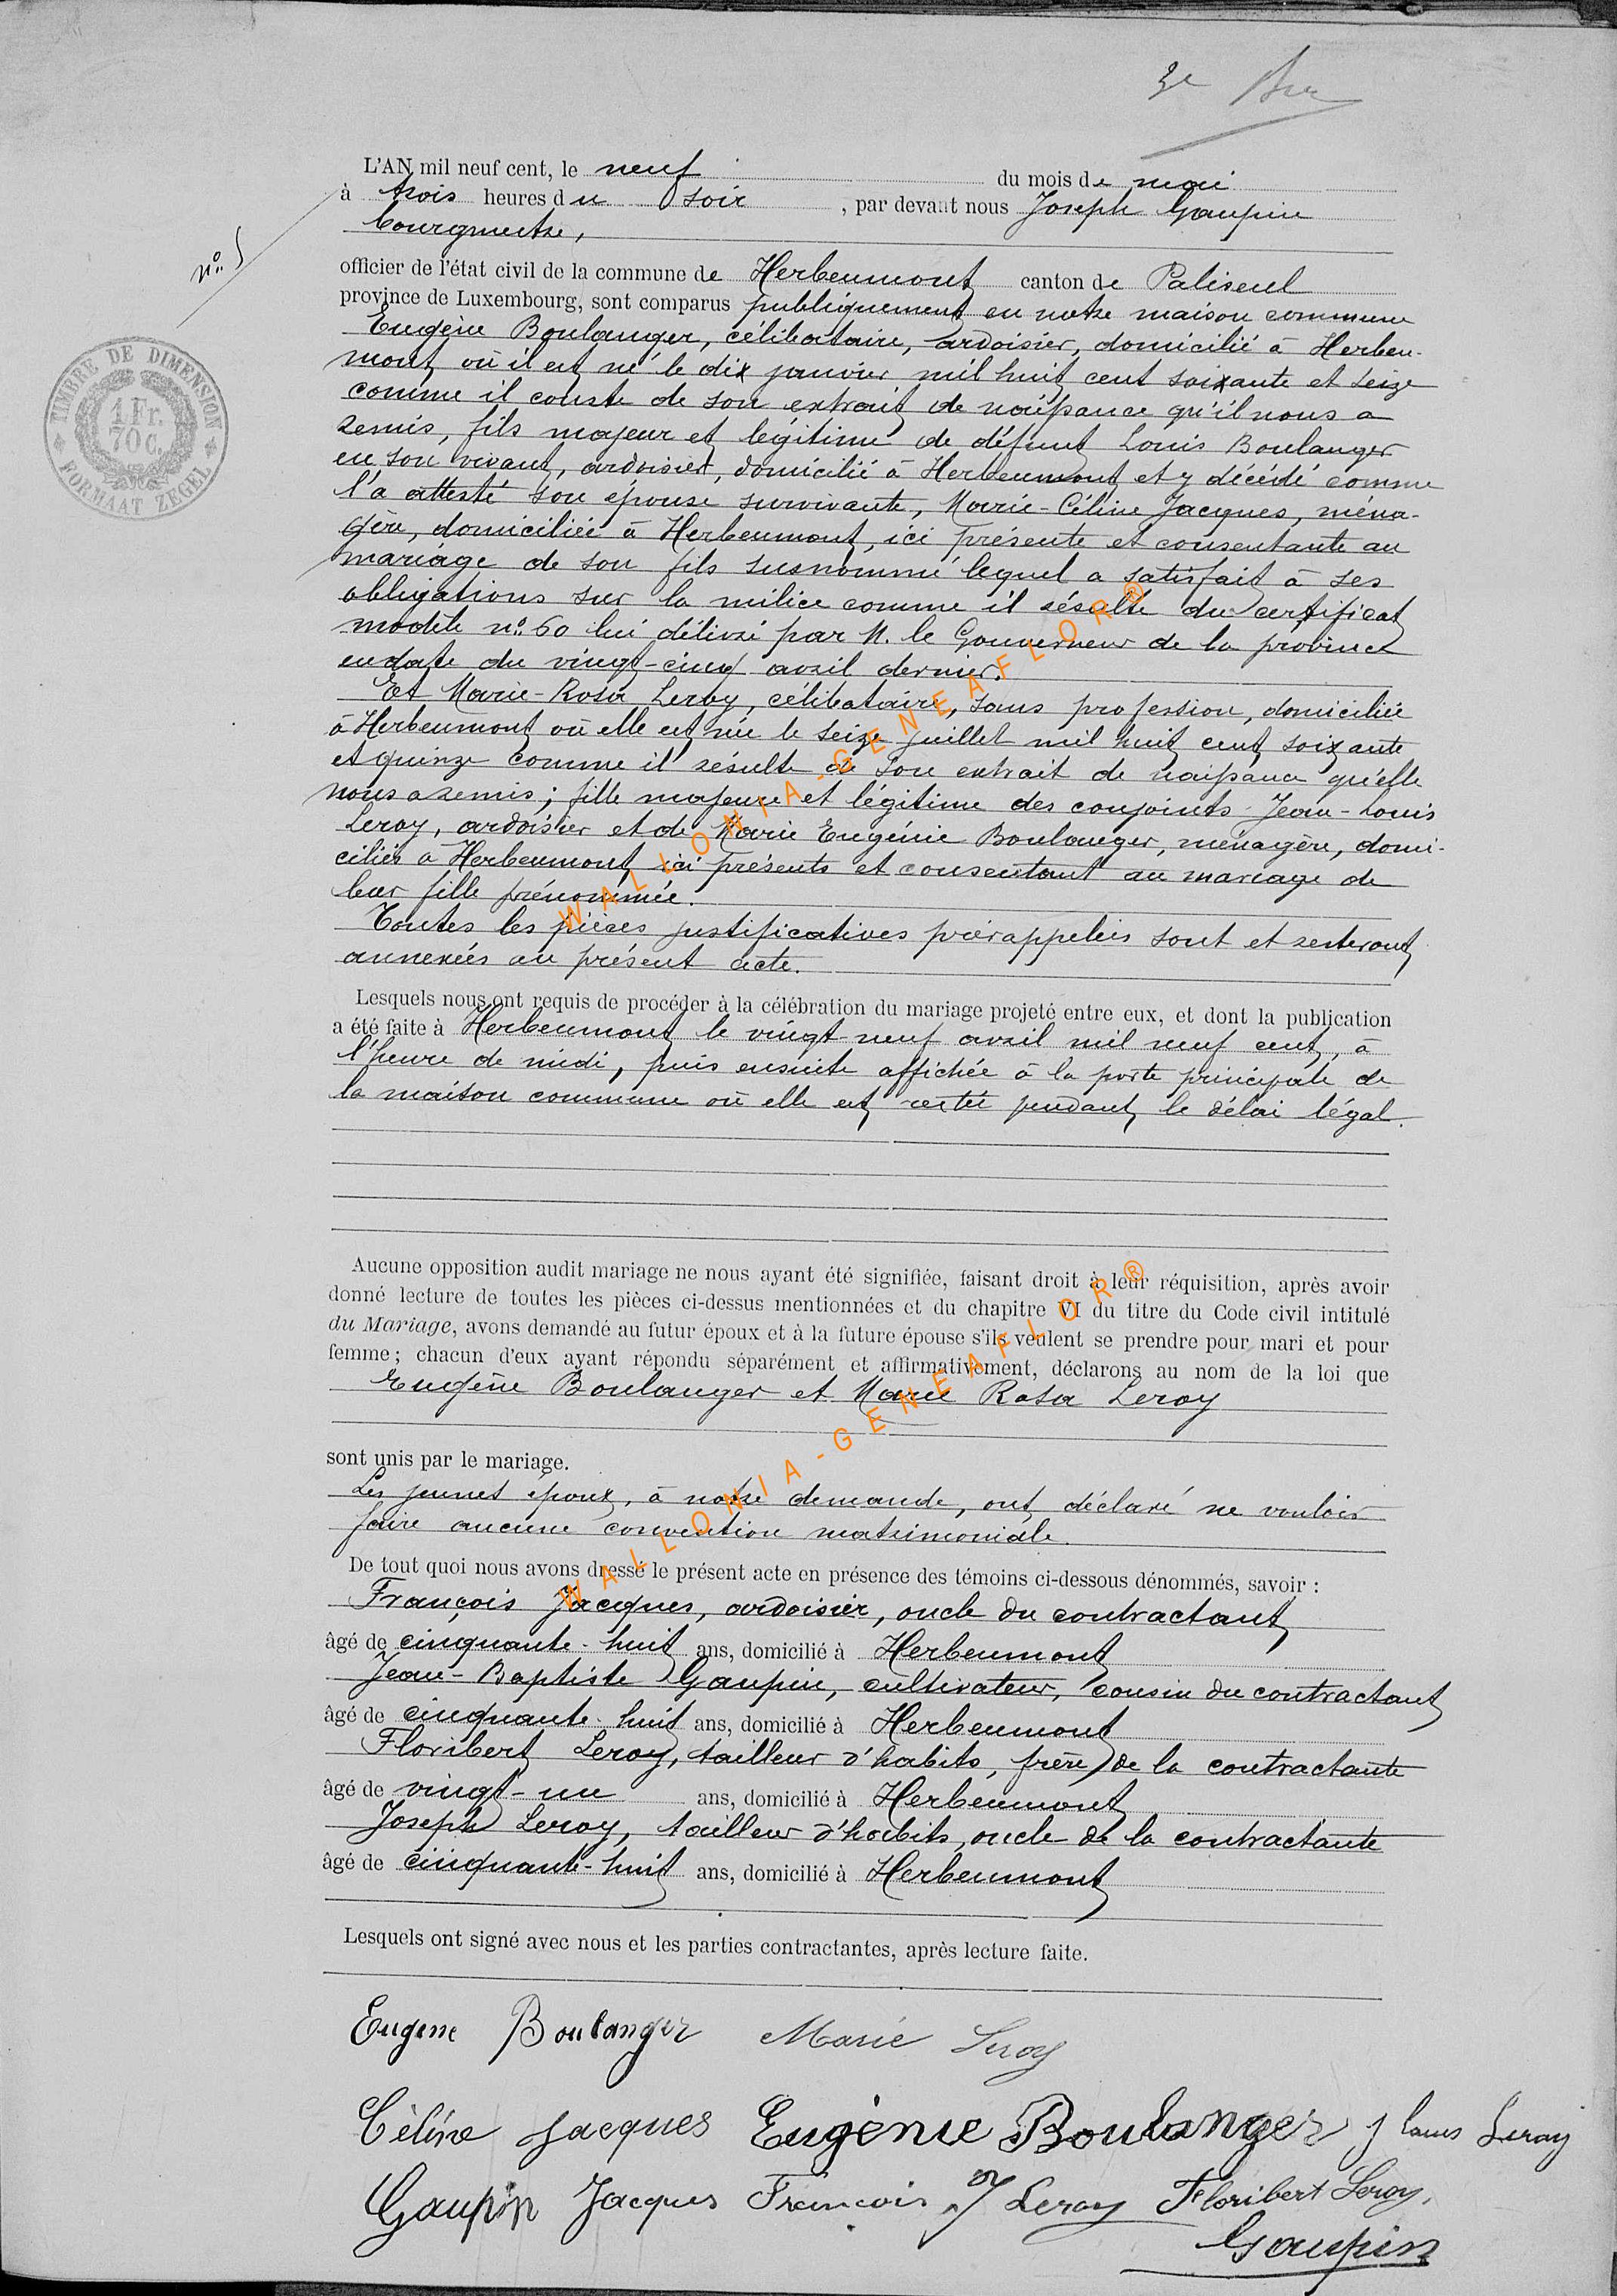 3e
L'AN mil neuf cent, le neuf du mois de mai
à trois heures du soir, par devant nous Joseph Gaupin
bourgmestre,
N° 5
officier de l'état civil de la commune de Herbeumont canton de Paliseul
province de Luxembourg, sont comparus publiquement en notre maison commune
Eugène Boulanger, célibataire, ardoisier, domicilié à Herbeu-
mont où il est né le dix janvier mil huit cent soixante et seize
comme il conste de son extrait de naissance qu'il nous a
remis, fils majeur et légitime de défunt Louis Boulanger
en son vivant, ardoisier, domicilié à Herbeumont et y décédé comme
l'a attesté son épouse survivante, Marie-Céline Jacques, ména-
gère, domiciliée à Herbeumont, ici présente et consentante au
mariage de son fils susnommé lequel a satisfait à ses
obligations sur la milice comme il résulte du certificat
modèle n° 60 lui délivré par M. le Gouverneur de la province
en date du vingt-cinq avril dernier.
Et Marie-Rosa Leroy, célibataire, sans profession, domiciliée
à Herbeumont où elle est née le seize juillet mil huit cent soixante
et quinze comme il résulte de son extrait de naissance qu'elle
nous a remis; fille majeure et légitime des conjoints Jean-Louis
Leroy, ardoisier et de Marie Eugénie Boulanger, ménagère, domi-
ciliés à Herbeumont, ici présents et consentant au mariage de
leur fille prénommée.
Toutes les pièces justificatives prérappelées sont et resteront
annexées au présent acte.
Lesquels nous ont requis de procéder à la célébration du mariage projeté entre eux, et dont la publication
a été faite à Herbeumont le vingt-neuf avril mil neuf cent, à
l'heure de midi, puis ensuite affichée à la porte principale de
la maison commune où elle est restée pendant le délai légal.
Aucune opposition audit mariage ne nous ayant été signifiée, faisant droit à leur réquisition, après avoir
donné lecture de toutes les pièces ci-dessus mentionnées et du chapitre VI du titre du Code civil intitulé
du Mariage, avons demandé au futur époux et à la future épouse s'ils veulent se prendre pour mari et pour
femme; chacun d'eux ayant répondu séparément et affirmativement, déclarons au nom de la loi que
Eugène Boulanger et Marie Rosa Leroy
sont unis par le mariage.
Les jeunes époux, à notre demande, ont déclaré ne vouloir
faire aucune convention matrimoniale.
De tout quoi nous avons dressé le présent acte en présence des témoins ci-dessous dénommés, savoir :
François Jacques, ardoisier, oncle du contractant
âgé de cinquante-huit ans, domicilié à Herbeumont
Jean-Baptiste Gaupin, cultivateur, cousin du contractant
âgé de cinquante-huit ans, domicilié à Herbeumont
Floribert Leroy, tailleur d'habits, frère de la contractante
âgé de vingt-un ans, domicilié à Herbeumont
Joseph Leroy, tailleur d'habits, oncle de la contractante
âgé de cinquante-huit ans, domicilié à Herbeumont
Lesquels ont signé avec nous et les parties contractantes, après lecture faite.
Eugene Boulanger Marie Leroy
Céline Jacques Eugénie Boulanger J Louis Leroy
Gaupin Jacques François J Leroy Floribert Leroy.
Gaupin
TIMBRE DE DIMENSION
1 Fr.
70 C.
FORMAAT ZEGEL
WALLONIA-GENEAFLOR®
WALLONIA-GENEAFLOR®